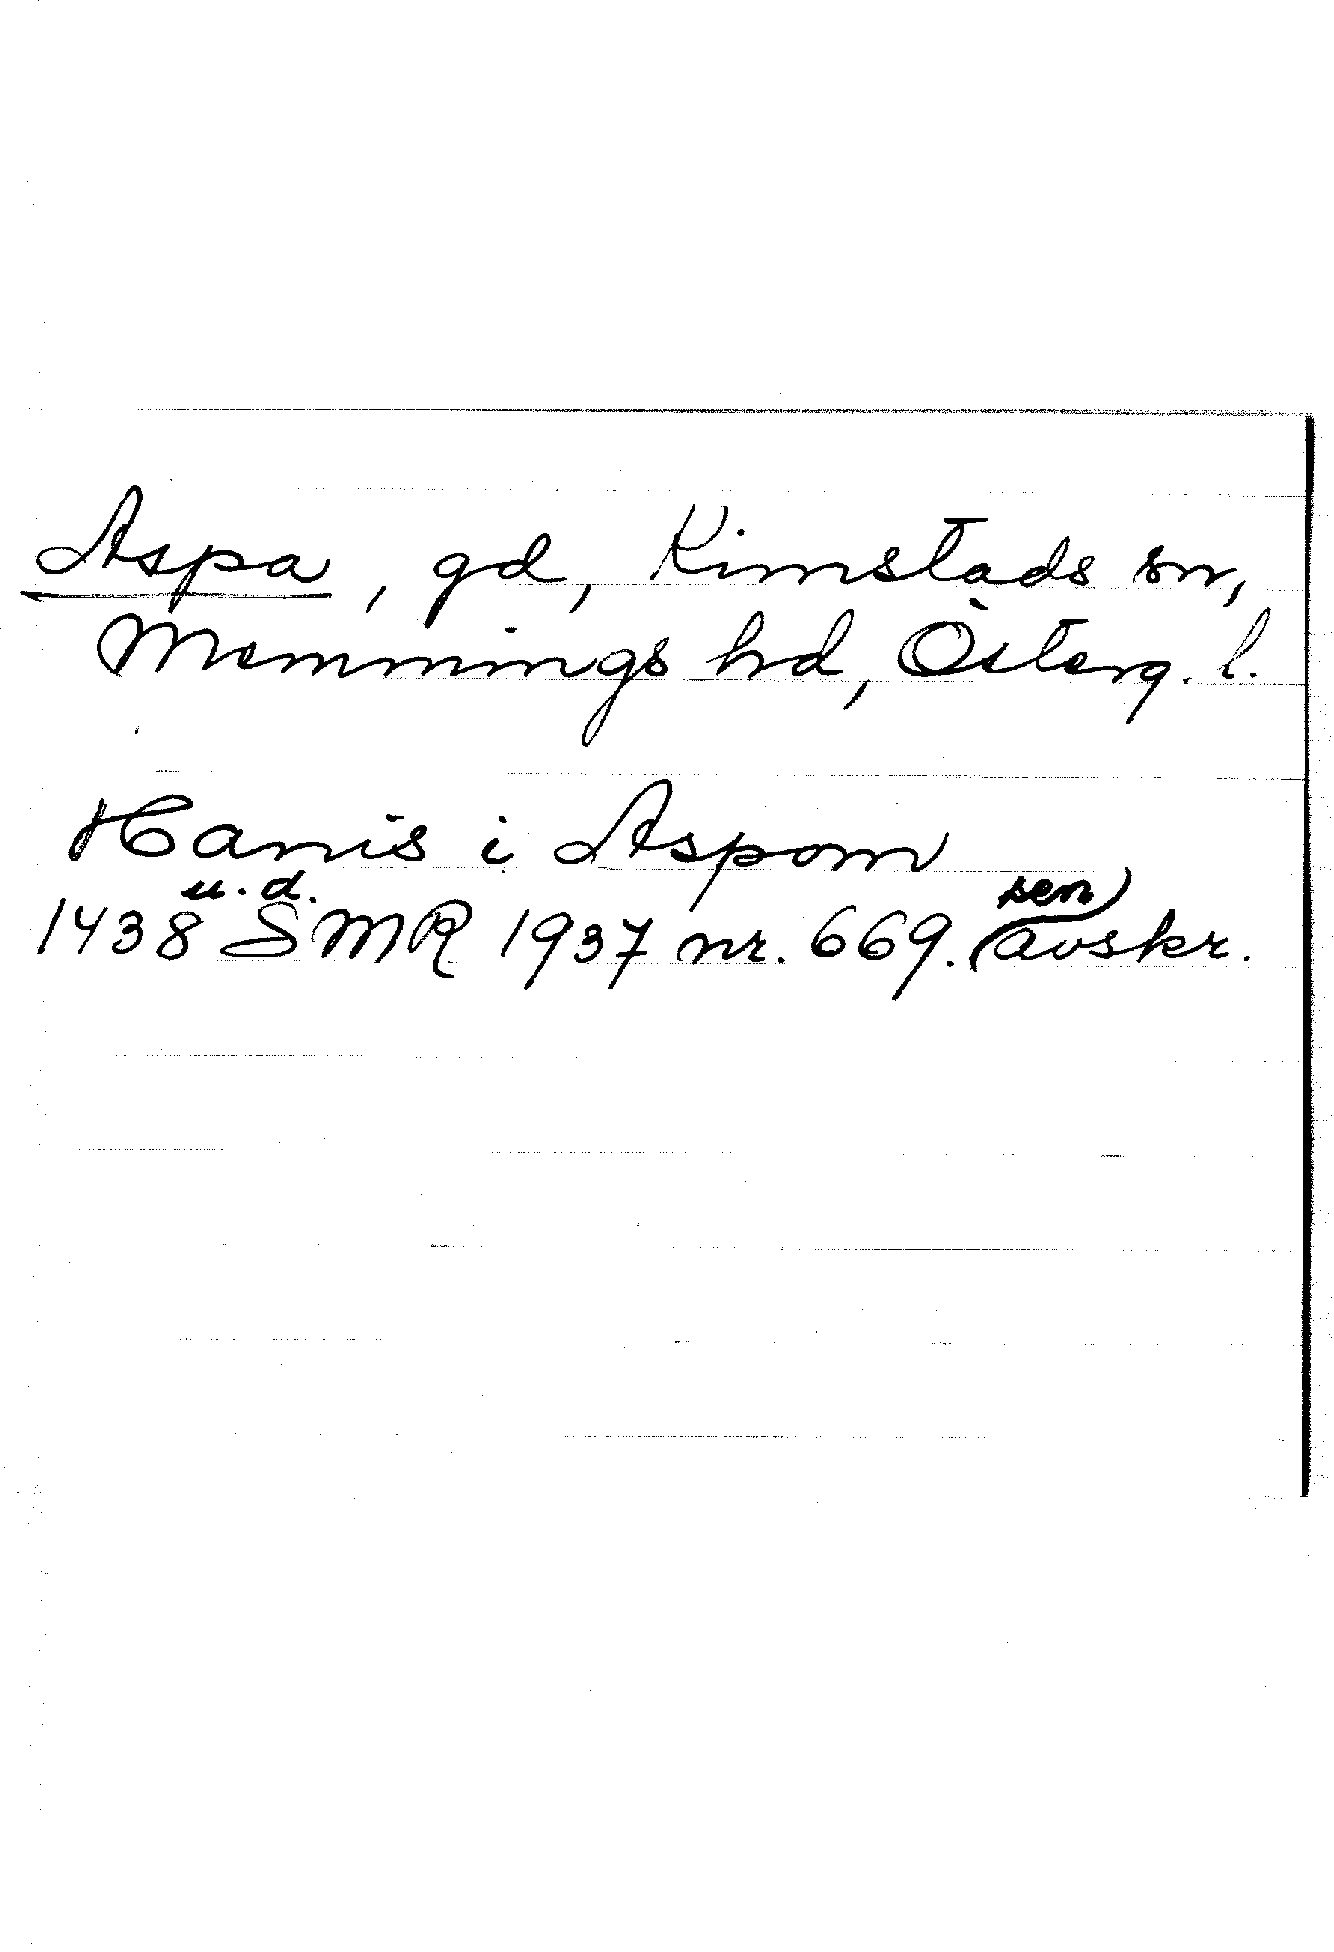 Aspa, gd, Kimstads sn,
Memmings hd, Österg. l.
Hanis i Aspom
1438 u.d. SMR 1937 nr. 669. (sen) avskr.